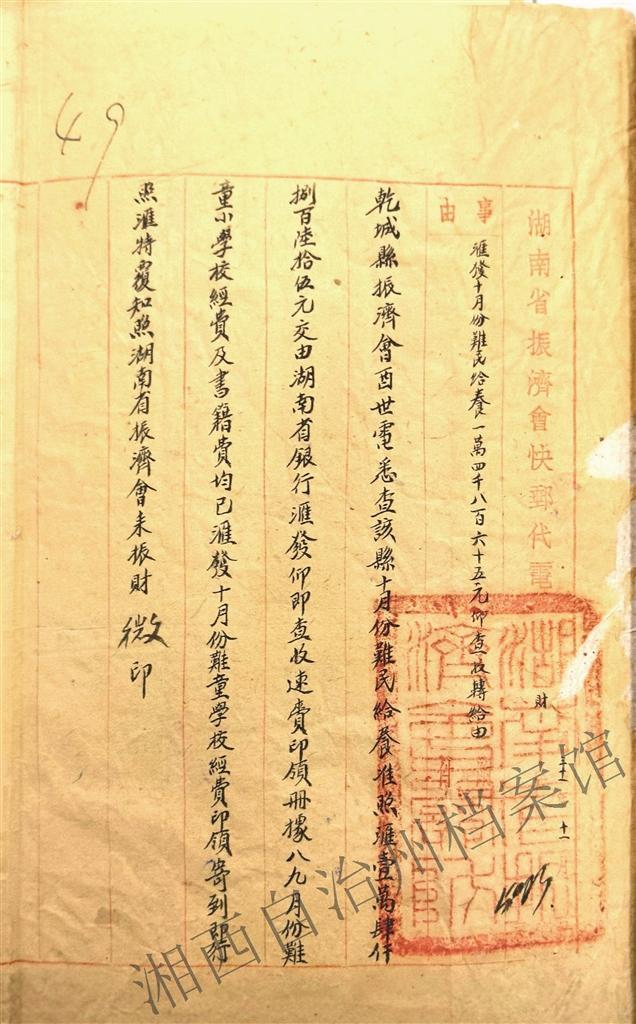 湖南省振濟會快郵代電
財
十一
事由
滙發十月份難民給養一萬四千八百六十五元仰查收轉給由
乾城縣振濟會酉世電悉查該縣十月份難民給養准照滙壹萬肆仟
捌百陸拾伍元交由湖南省銀行滙發仰即查收速賫印領冊據八九月份難
童小學校經費及書籍費均已滙發十月份難童學校經費印領寄到即行
照滙特覆知照湖南省振濟會未振財微印
49
湘西自治州档案馆